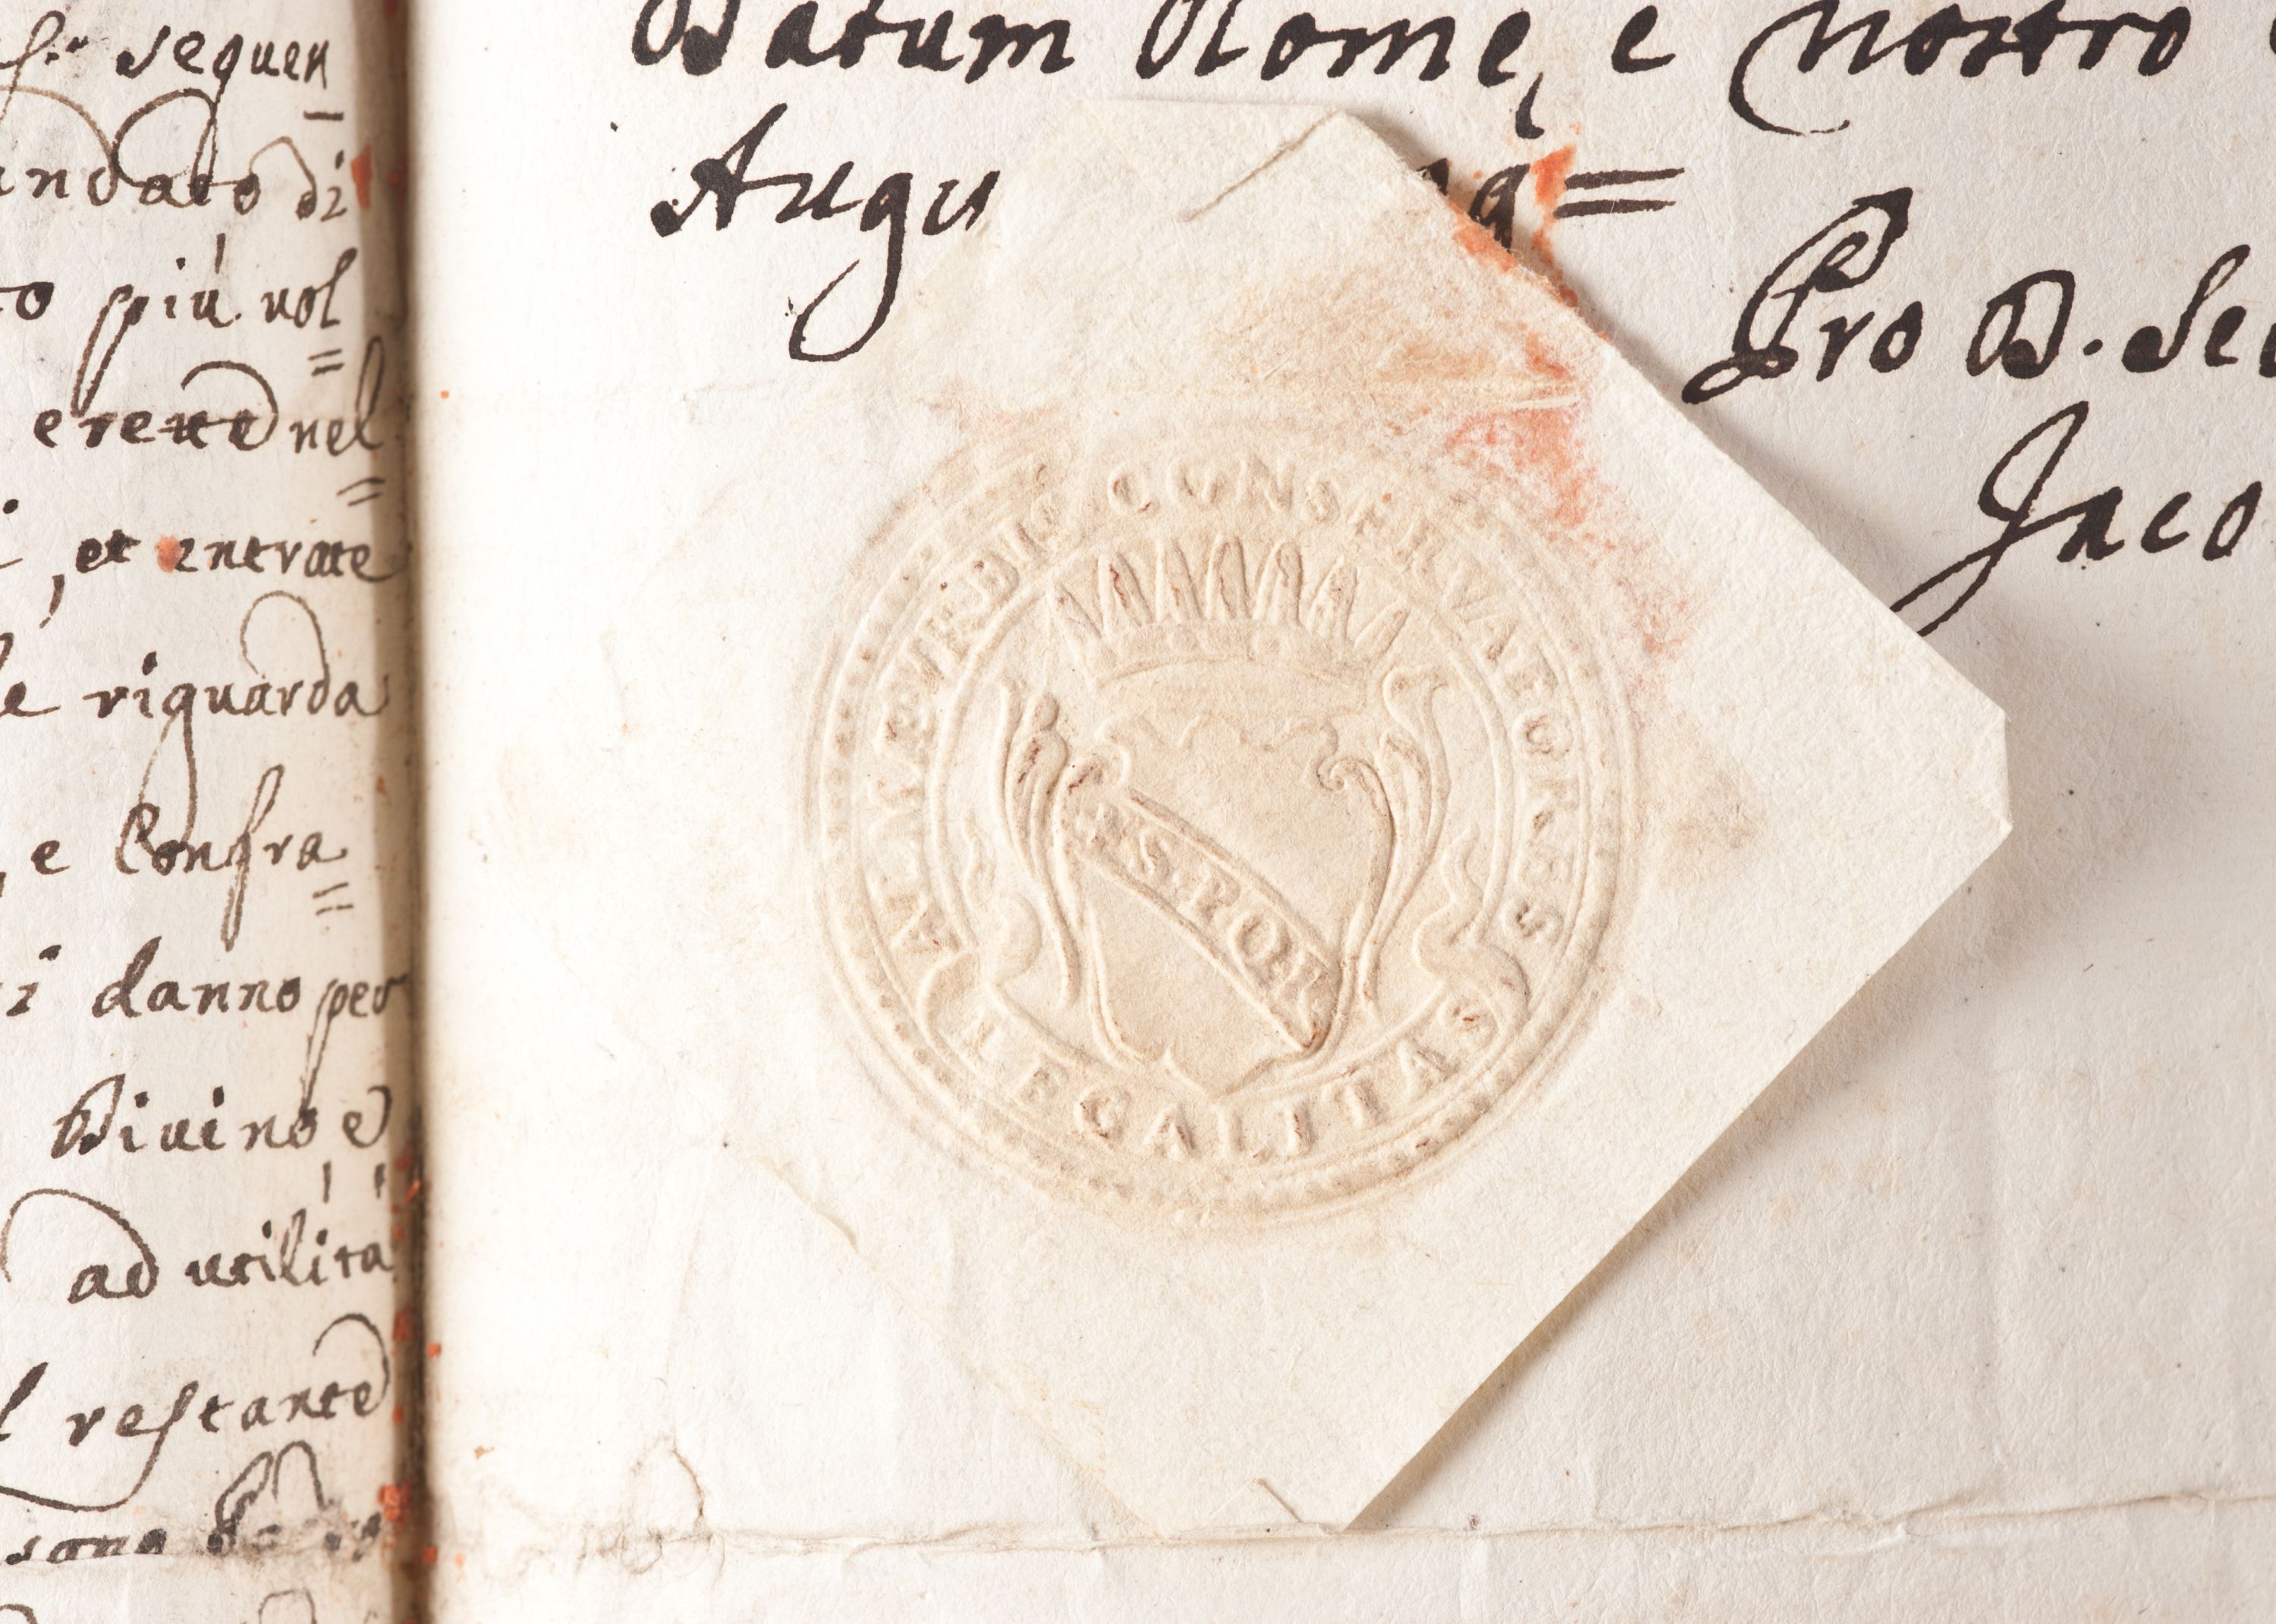 sequen
andato di
più vol=
nel=
, et entrate
le riguarda
, e Confra=
danno per
Diuino, e
ad utilità
l restante
Datum Romę, e Nostro
Augu
Pro D. Se
Jaco
ALMAE VRBIS CONSERVATORES
SPQR
LEGALITAS